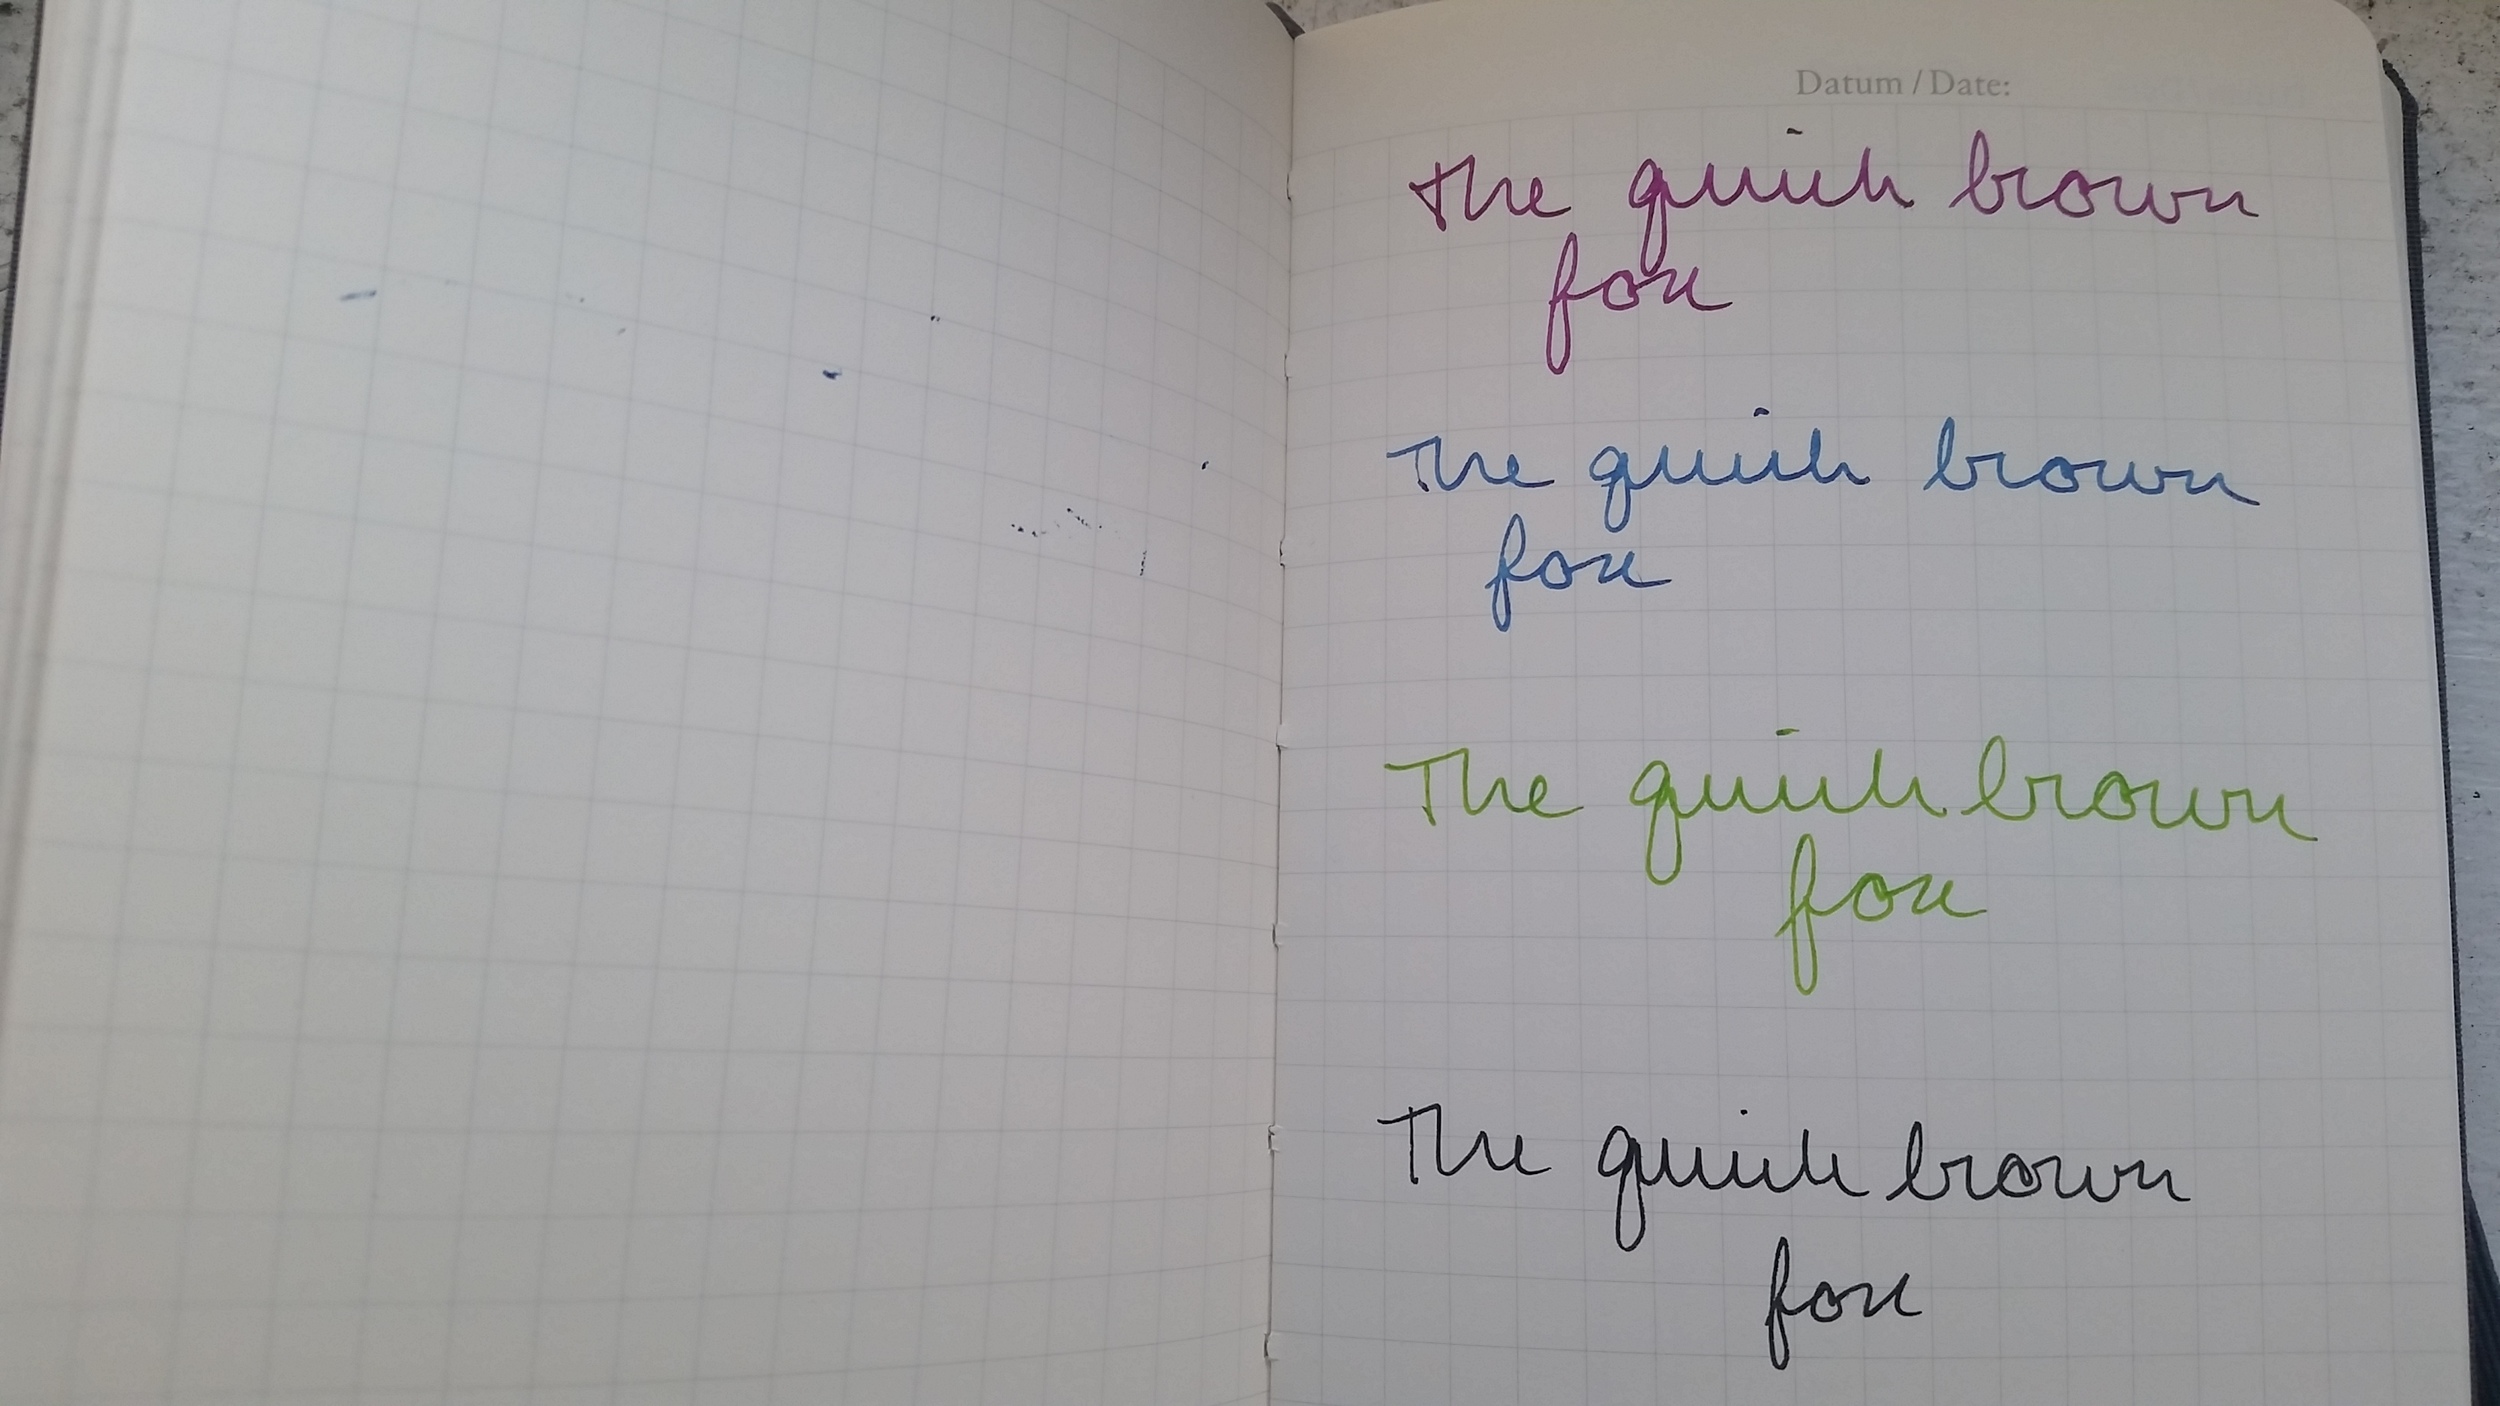 Datum / Date:
the quick brown
fox
The quick brown
fox
The quick brown
fox
The quick brown
fox